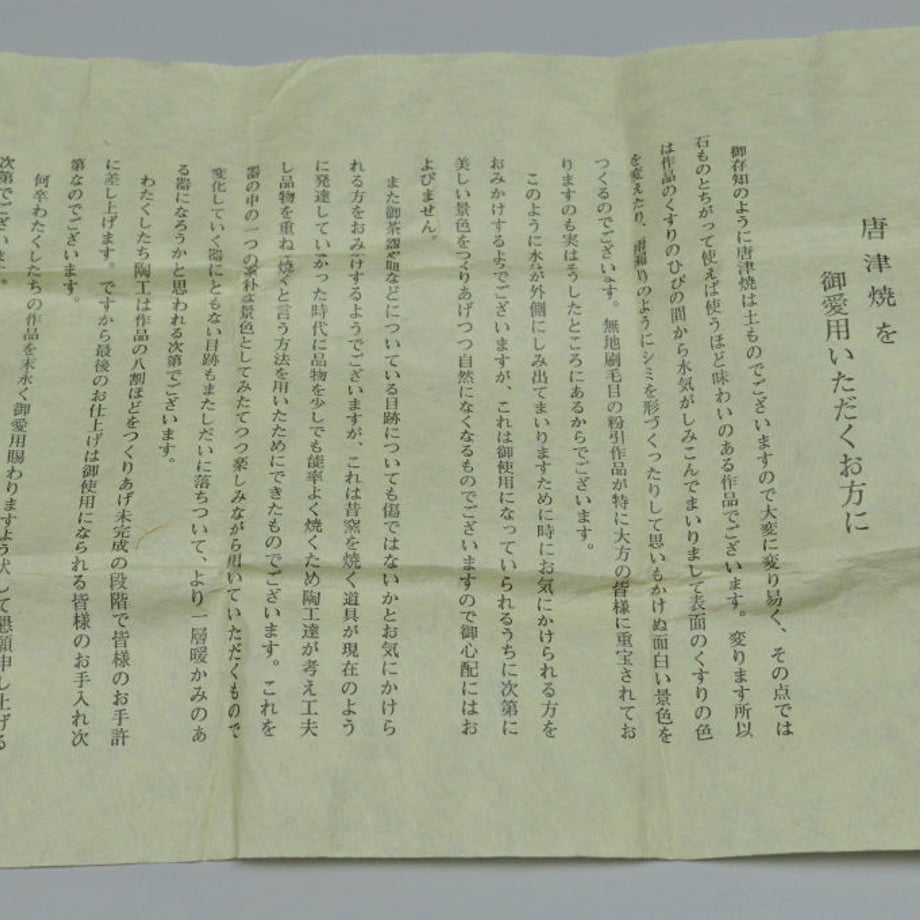 唐津焼を
御愛用いただくお方に
御存知のように唐津焼は土ものでございますので大変に変り易く、その点では
石ものとちがって使えば使うほど味わいのある作品でございます。変ります所以
は作品のくすりのひびの間から水気がしみこんでまいりまして表面のくすりの色
を変えたり、雨漏りのようにシミを形づくったりして思いもかけぬ面白い景色を
つくるのでございます。無地刷毛目の粉引作品が特に大方の皆様に重宝されてお
りますのも実はそうしたところにあるからでございます。
このように水が外側にしみ出てまいりますために時にお気にかけられる方を
おみかけするようでございますが、これは御使用になっていられるうちに次第に
美しい景色をつくりあげつつ自然になくなるものでございますので御心配にはお
よびません。
また御茶器や皿などについている目跡についても傷ではないかとお気にかけら
れる方をおみかけするようでございますが、これは昔窯を焼く道具が現在のよう
に発達していなかった時代に品物を少しでも能率よく焼くため陶工達が考え工夫
し品物を重ね焼くと言う方法を用いたためにできたものでございます。これを
器の中の一つの素朴な景色としてみたてつつ楽しみながら用いていただくもので
変化していく器にともない目跡もまたしだいに落ちついて、より一層暖かみのあ
る器になろうかと思われる次第でございます。
わたくしたち陶工は作品の八割ほどをつくりあげ未完成の段階で皆様のお手許
に差し上げます。ですから最後のお仕上げは御使用になられる皆様のお手入れ次
第なのでございます。
何卒わたくしたちの作品を末永く御愛用賜わりますよう伏して懇願申し上げる
次第でございます。